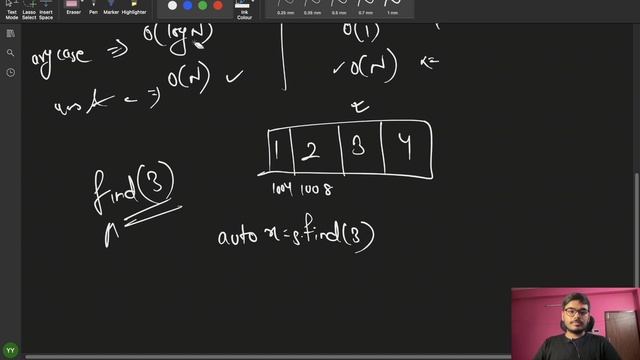 Text Mode
Lasso Select
Insert Space
Eraser
Pen
Marker
Highlighter
Ink Colour
0.25 mm
0.35 mm
0.5 mm
0.7 mm
1 mm
avg case => O(log N)
O(1)
=> O(N) ✓
✓ O(N)
1 2 3 4
1004 1008
find(3)
auto x=s.find(3)
YY